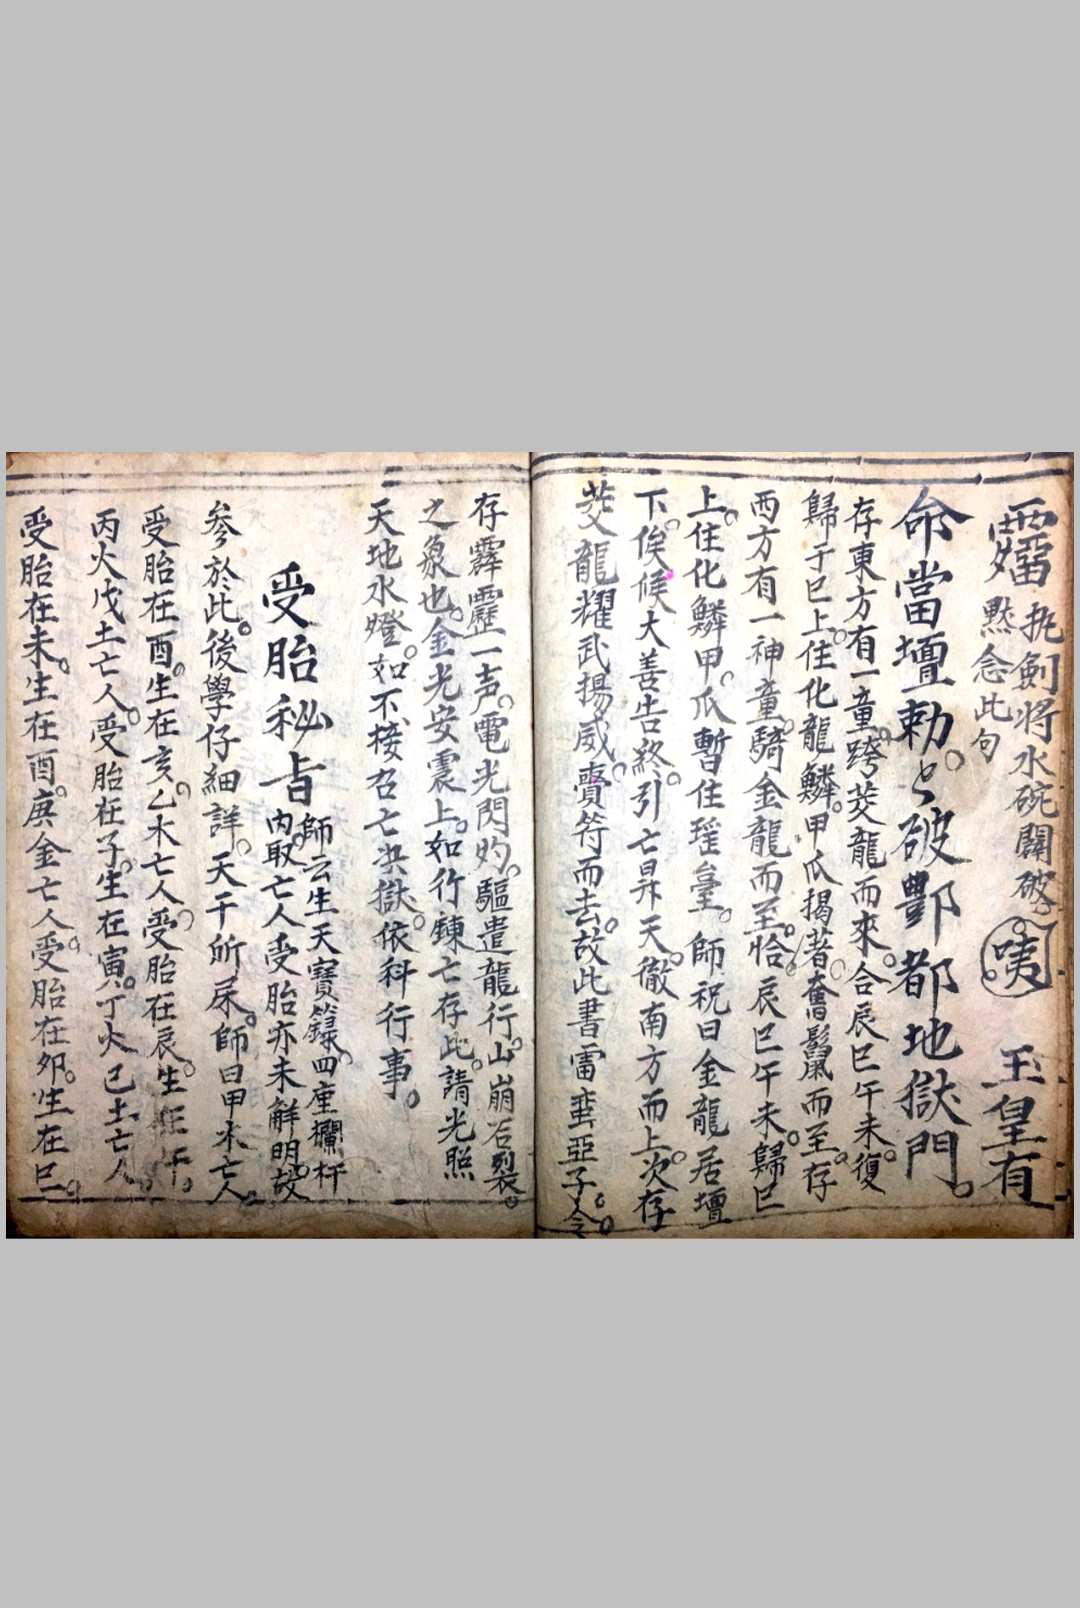 執劍將水碗開破
默念此句
咦 玉皇有
命當壇勅。破酆都地獄門。
存東方有一童。跨茭龍而來。合辰巳午未。復
歸于巳上。住化龍鱗。甲爪揭著。奮鬣而至。存
西方有一神童。騎金龍而至。恰辰巳午未。歸巳
上。住化鱗甲。爪暫住瑶臺。師祝曰金龍居壇
下。俟候大善告終。引亡昇天。徹南方而上。次存
茭龍耀武揚威。賫符而去。故此書雷霆亞子令。
存霹靂一声。電光閃灼。驅遣龍行。山崩石裂。
之象也。金光安震上。如行鍊亡存此。請光照
天地水燈。如不接召亡洪獄。依科行事。
受胎秘旨
師云生天寶籙。四座欄杆
内取亡人受胎亦未解明。故
参於此。後學仔細詳。天干所屎。師曰甲木亡人。
受胎在酉。生在亥。乙木亡人。受胎在辰。生在午。
丙火戊土亡人。受胎在子。生在寅。丁火己土亡人。
受胎在未。生在酉。庚金亡人。受胎在卯。生在巳。